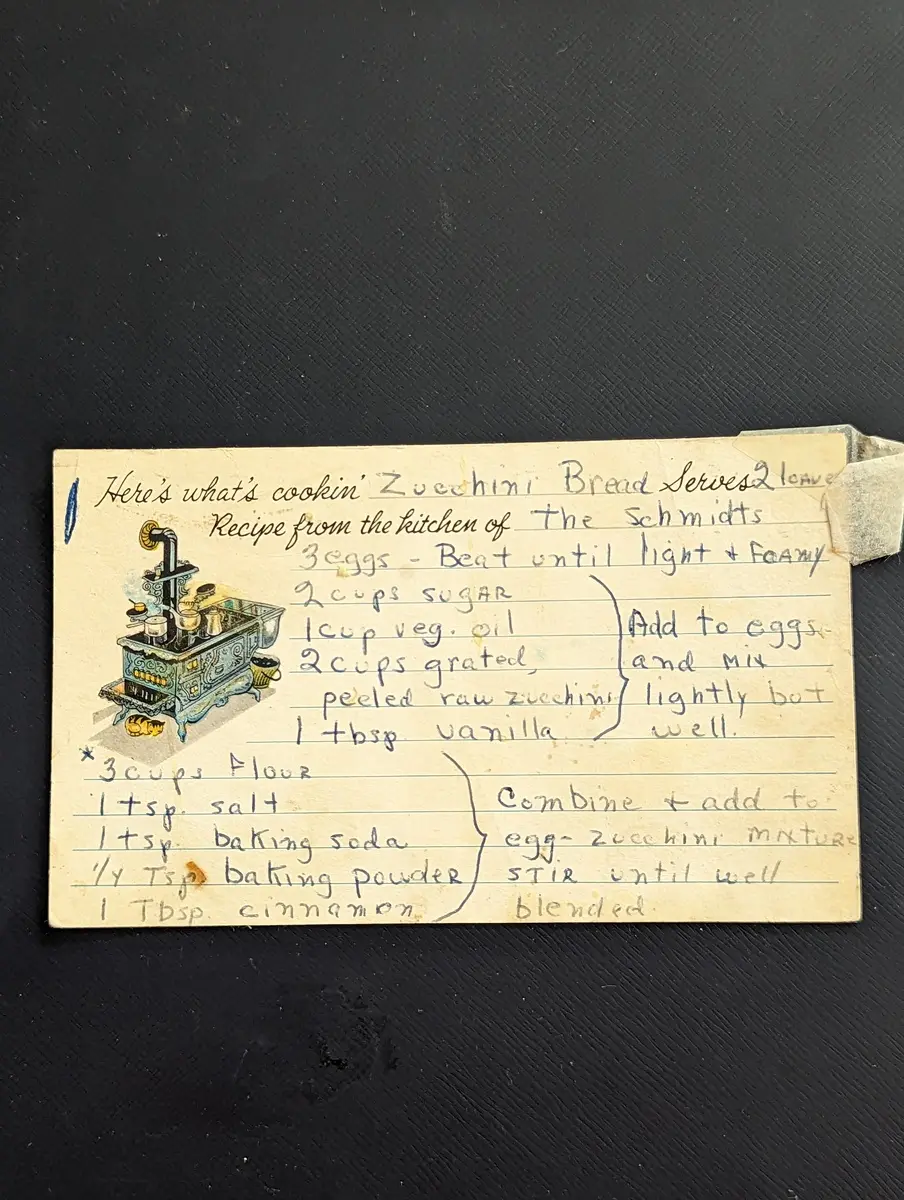 Here's what's cookin' Zucchini Bread Serves 2 loave
Recipe from the kitchen of The Schmidts
3 eggs - Beat until light + FOAMY
2 cups SUGAR
1 cup veg. oil
2 cups grated,
peeled raw zucchini
1 tbsp vanilla
Add to eggs
and MIX
lightly but
well.
* 3 cups Flour
1 tsp. salt
1 tsp. baking soda
1/4 Tsp. baking powder
1 Tbsp. cinnamon
Combine + add to
egg-zucchini MIXTURE
STIR until well
blended.